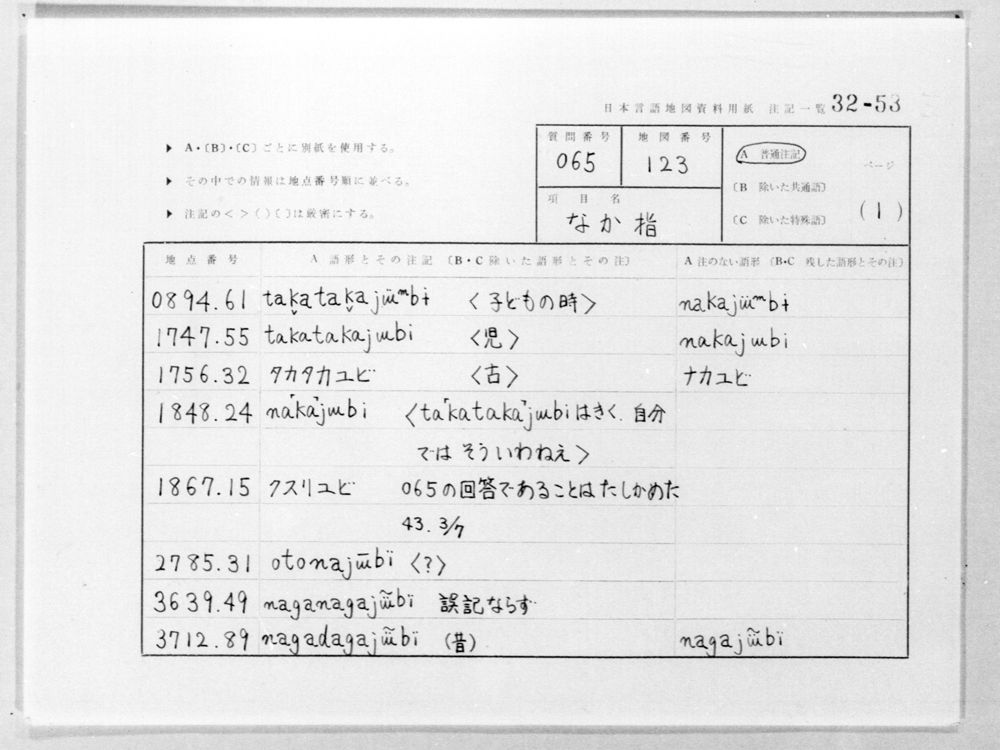 日本言語地図資料用紙 注記一覧 32-53
▶ A・〔B〕・〔C〕ごとに別紙を使用する。
▶ その中での情報は地点番号順に並べる。
▶ 注記の< >( )〔 〕は厳密にする。
質問番号 地図番号
065 123
項目名
なか指
A 普通注記
〔B 除いた共通語〕
〔C 除いた特殊語〕
ページ
(1)
地点番号 A 語形とその注記 〔B・C 除いた語形とその注〕 A 注のない語形 〔B・C 残した語形とその注〕
0894.61 tak̬atak̬ajɯ̈ᵐbɨ 〈子どもの時〉 nakajɯ̈ᵐbɨ
1747.55 takatakajɯbi 〈児〉 nakajɯbi
1756.32 タカタカユビ 〈古〉 ナカユビ
1848.24 na「ka」jɯbi 〈ta「kataka」jɯbiはきく.自分
ではそういわねえ〉
1867.15 クスリユビ 065の回答であることはたしかめた
43. 3/7
2785.31 otonajɯ̄bï 〈?〉
3639.49 naganagajɯ̈̃bï 誤記ならず
3712.89 nagadagajɯ̈̃bï (昔) nagajɯ̈̃bï